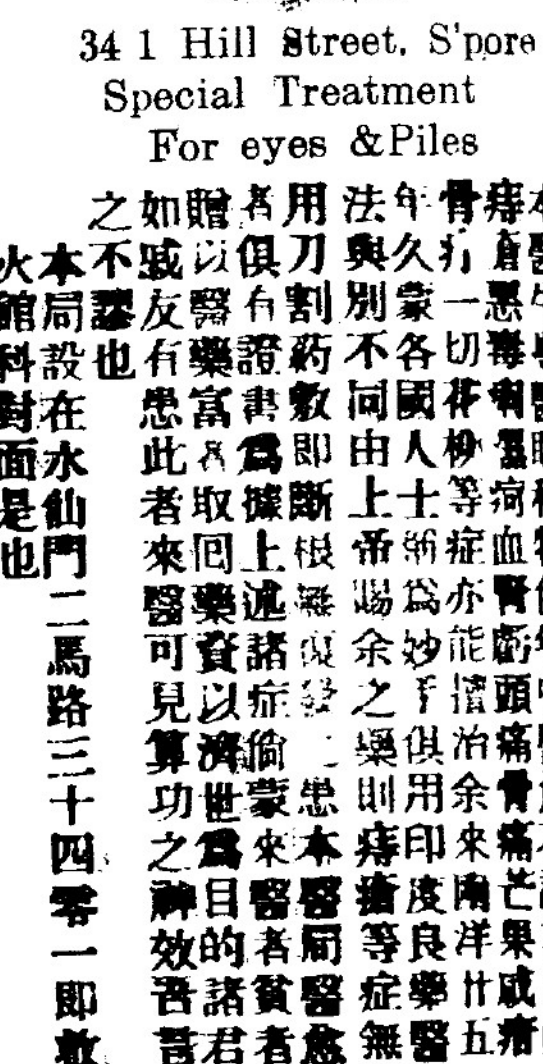 34 1 Hill Street, S'pore
Special Treatment
For eyes &Piles
痔瘡惡毒血腎虧頭痛骨痛芒果
骨疔一切花柳等症亦能擔治余來南洋廿五
年久蒙各國人士稱為妙手俱用印度良藥醫
法與別不同由上帝賜余之藥則痔瘡等症無
用刀割葯敷即斷根無復發之患本醫局醫愈
者俱有證書爲據上述諸症倘蒙來醫者貧者
贈以醫藥富者取囘藥資以濟世爲目的諸君
如戚友有患此者來醫可見算功之神效吾言
之不謬也
本局設在水仙門二馬路三十四零一即救
火館科對面是也